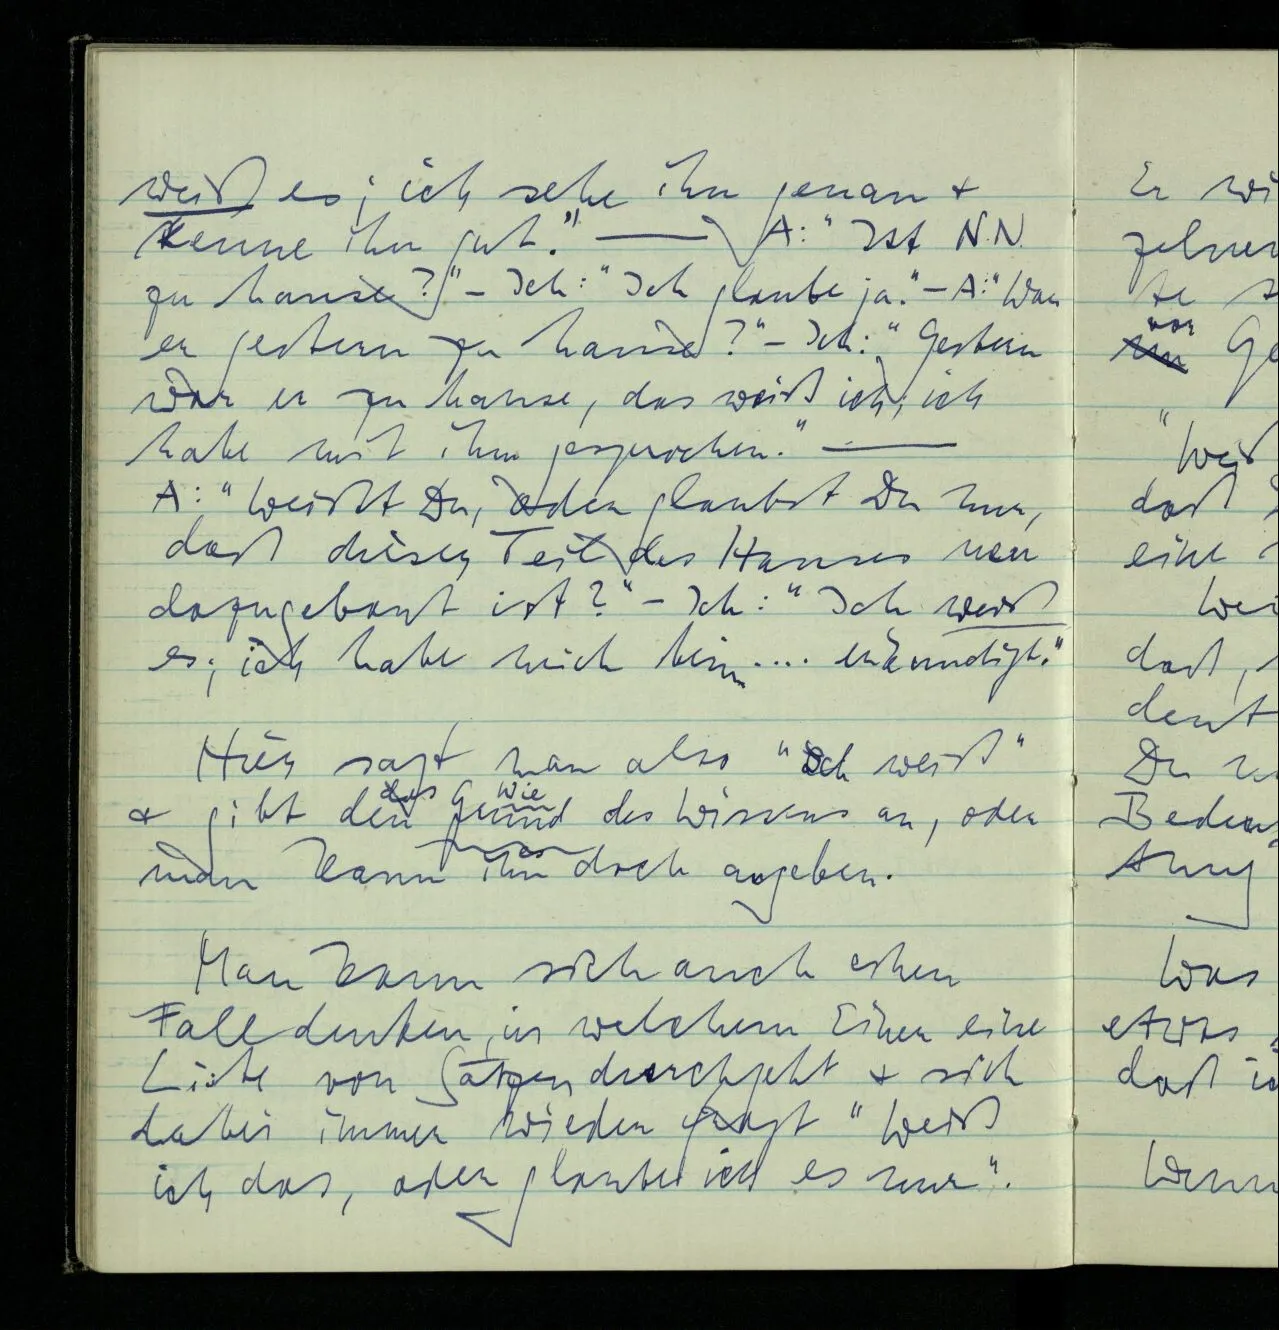 weiß es; ich sehe ihn genau &
kenne ihn gut." —— A: "Ist N.N.
zu hause?" – Ich: "Ich glaube ja." – A: "War
er gestern zu hause?" – Ich: "Gestern
war er zu hause, das weiß ich; ich
habe mit ihm gesprochen." ——
A: "Weißt Du, oder glaubst Du nur,
daß dieser Teil des Hauses neu
dazugebaut ist?" – Ich: "Ich weiß
es; ich habe mich beim .... erkundigt."
Hier sagt man also "Ich weiß"
das Wie
& gibt den Grund des Wissens an, oder
es
man kann ihn doch angeben.
Man kann sich auch einen
Fall denken, in welchem Einer eine
Liste von Sätzen durchgeht & sich
dabei immer wieder fragt "Weiß
ich das, oder glaube ich es nur".
Er
vor
"Weiß
daß
eine
daß,
Du
Was
etwas
daß